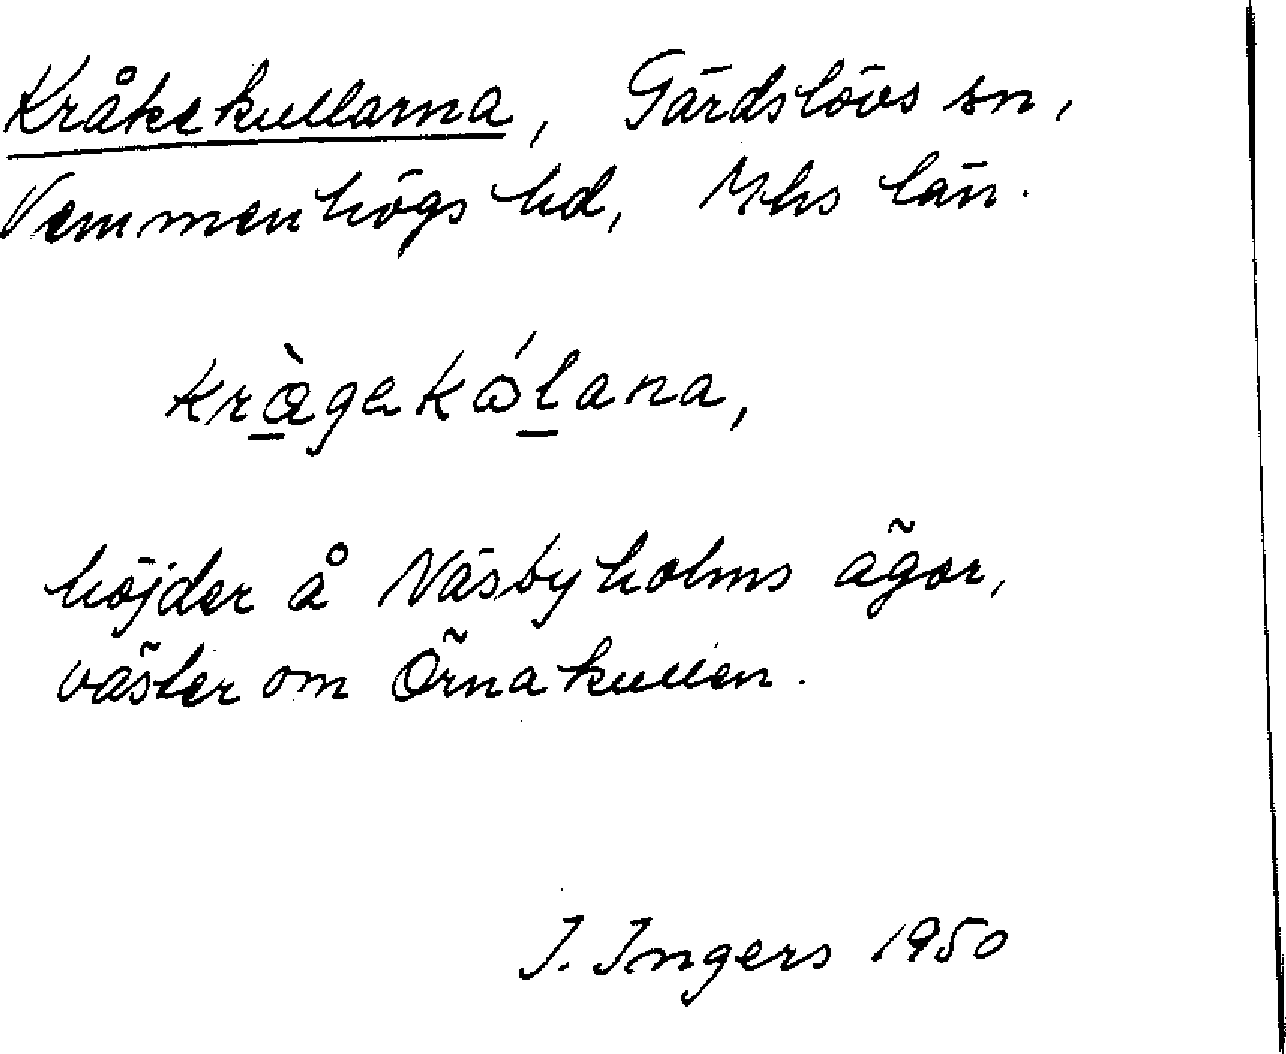 Kråkekullarna, Gärdslövs sn,
Vemmenhögs hd, Mhs län.
kràgekúlana,
höjder å Näsbyholms ägor,
väster om Örnakullen.
I. Ingers 1950